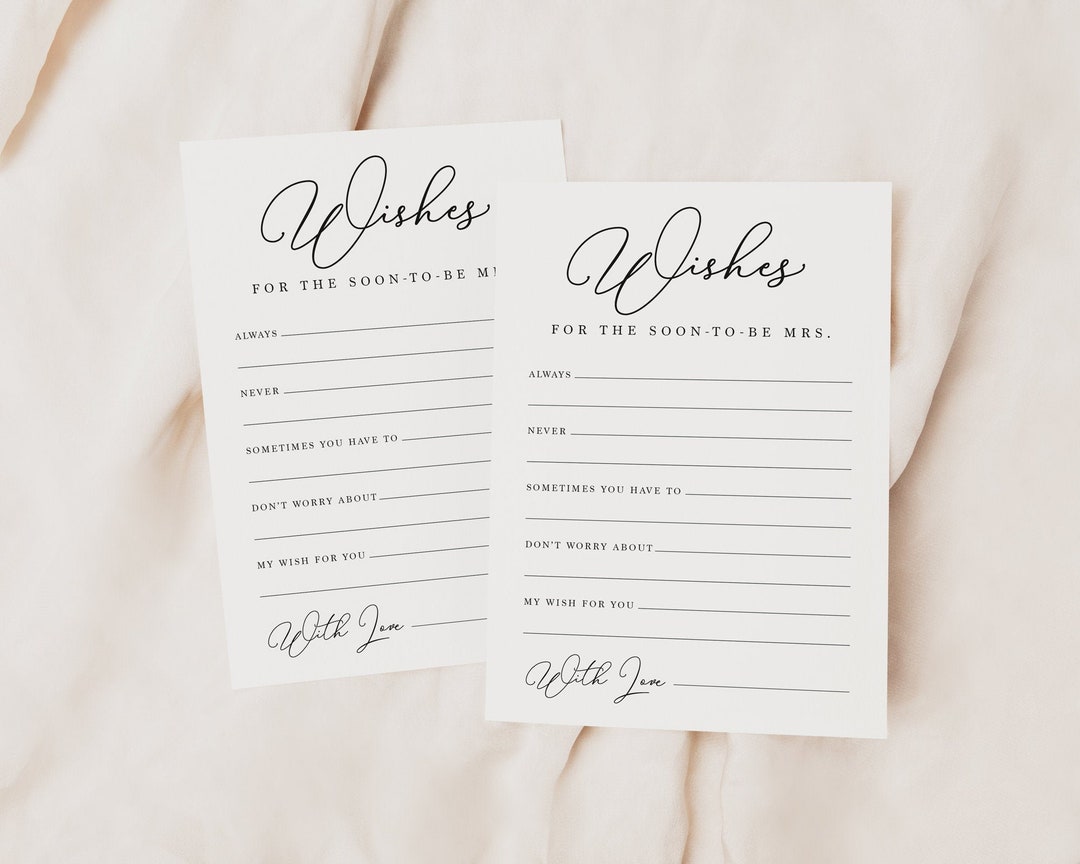 Wishes
FOR THE SOON-TO-BE
ALWAYS
NEVER
SOMETIMES YOU HAVE TO
DON'T WORRY ABOUT
MY WISH FOR YOU
With Love
Wishes
FOR THE SOON-TO-BE MRS.
ALWAYS
NEVER
SOMETIMES YOU HAVE TO
DON'T WORRY ABOUT
MY WISH FOR YOU
With Love